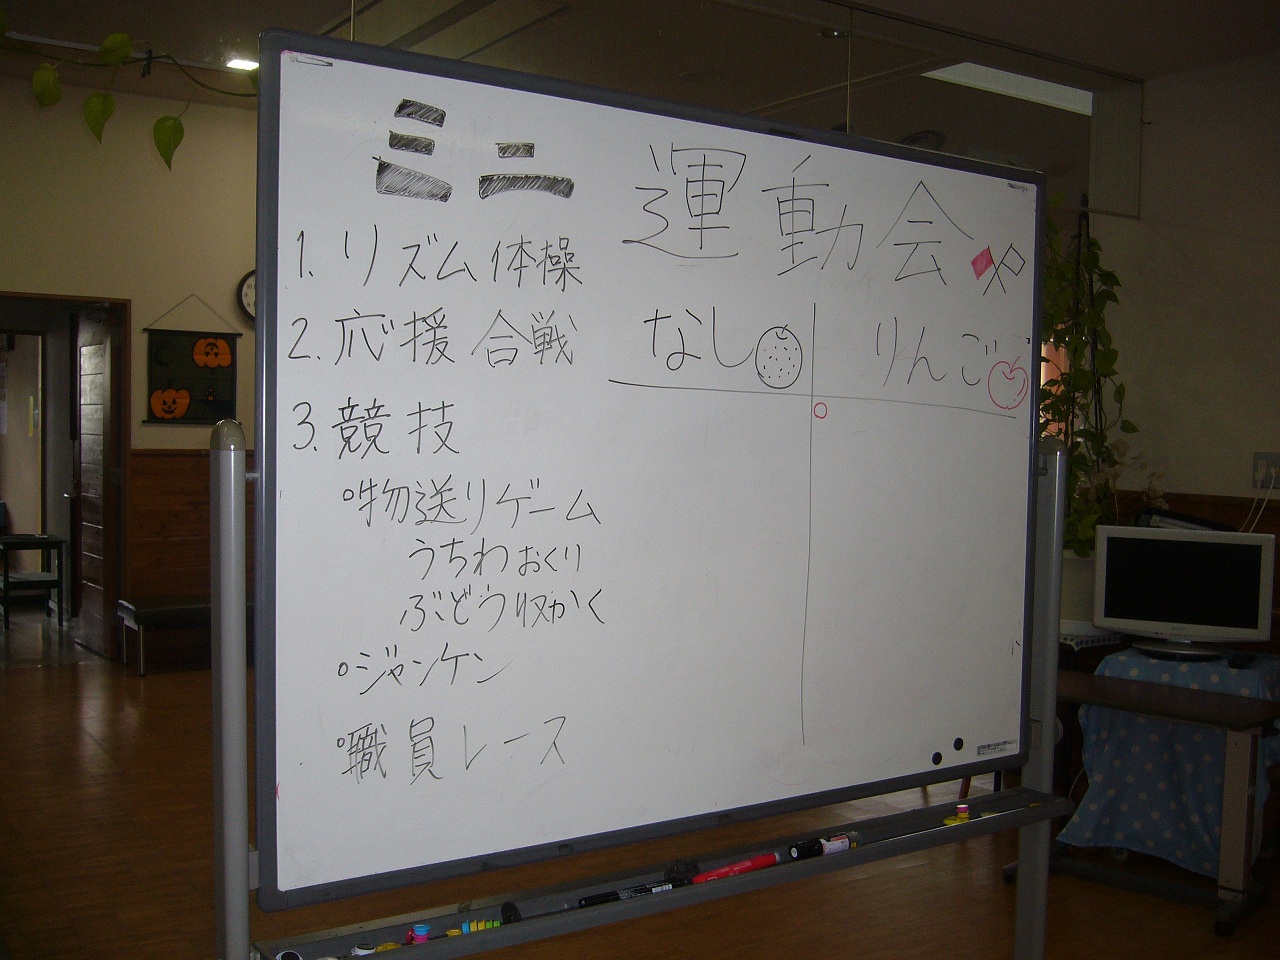 ミニ 運動会
1. リズム体操
2. 応援合戦
3. 競技
°物送りゲーム
うちわおくり
ぶどう収かく
°ジャンケン
°職員レース
なし りんご